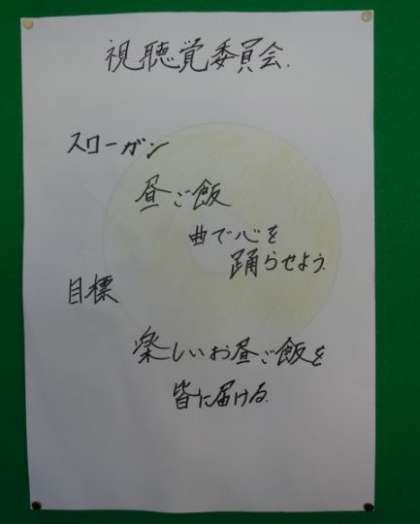 視聴覚委員会.
スローガン
昼ご飯
曲で心を
踊らせよう.
目標
楽しいお昼ご飯を
皆に届ける.